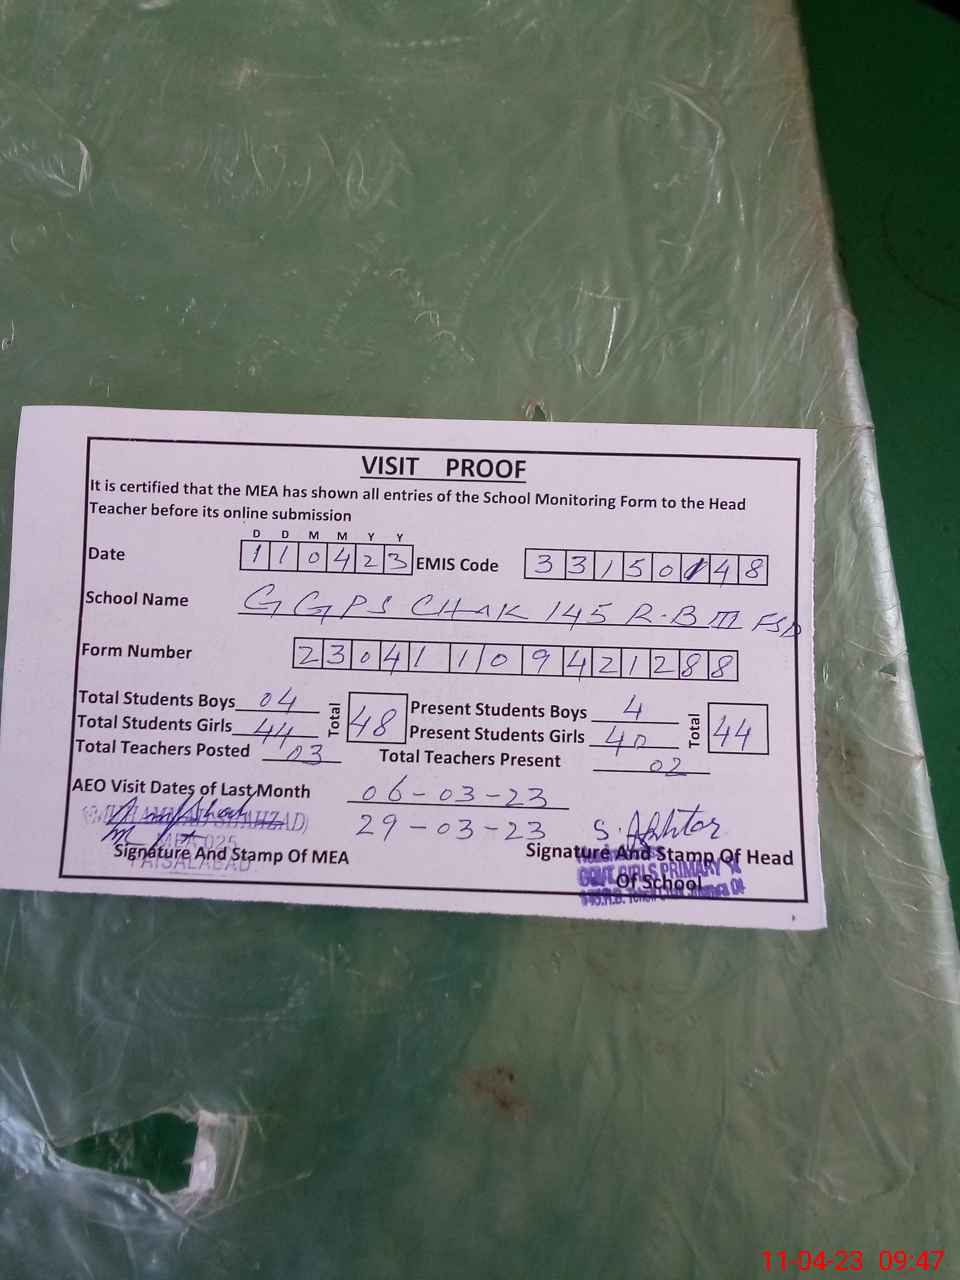 VISIT PROOF
It is certified that the MEA has shown all entries of the School Monitoring Form to the Head
Teacher before its online submission
D D M M Y Y
Date 1 1 0 4 2 3 EMIS Code 3 3 1 5 0 1 4 8
School Name GGPS CHAK 145 R-B III FSD
Form Number 2 3 0 4 1 1 0 9 4 2 1 2 8 8
Total Students Boys 04 Total 48 Present Students Boys 4 Total 44
Total Students Girls 44 Present Students Girls 40
Total Teachers Posted 03 Total Teachers Present 02
AEO Visit Dates of Last Month 06-03-23
29-03-23 S. Akhtar
(MUHAMMAD SHAHZAD)
MEA 025
FAISALABAD
Signature And Stamp Of MEA Signature And Stamp Of Head
Of School
GOVT. GIRLS PRIMARY
11-04-23 09:47